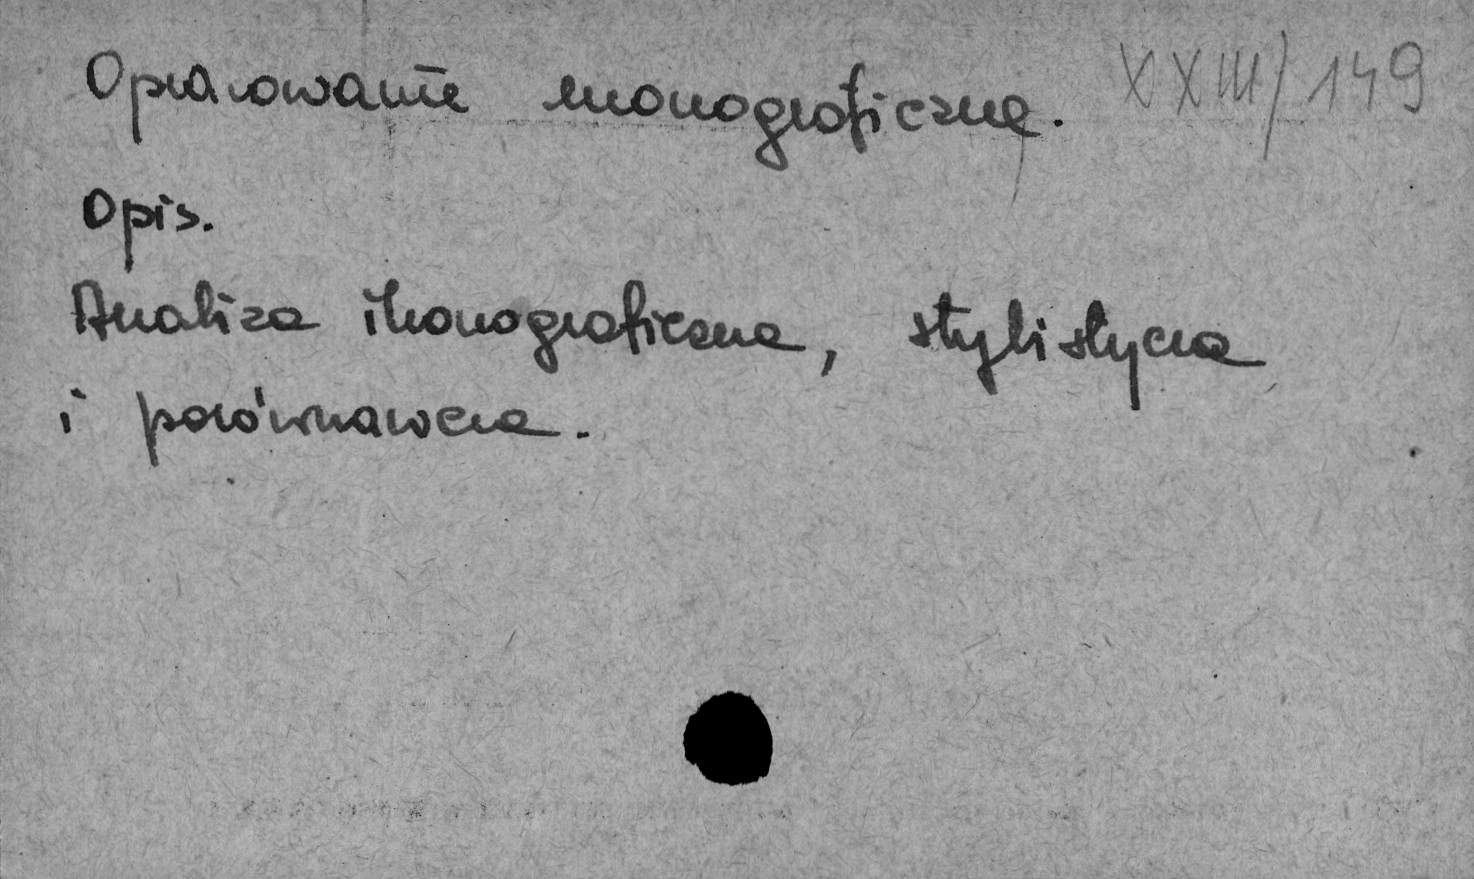 Opracowanie monograficzne. XXIII/149
Opis.
Analiza ikonograficzna, stylistycza
i porównawcza.